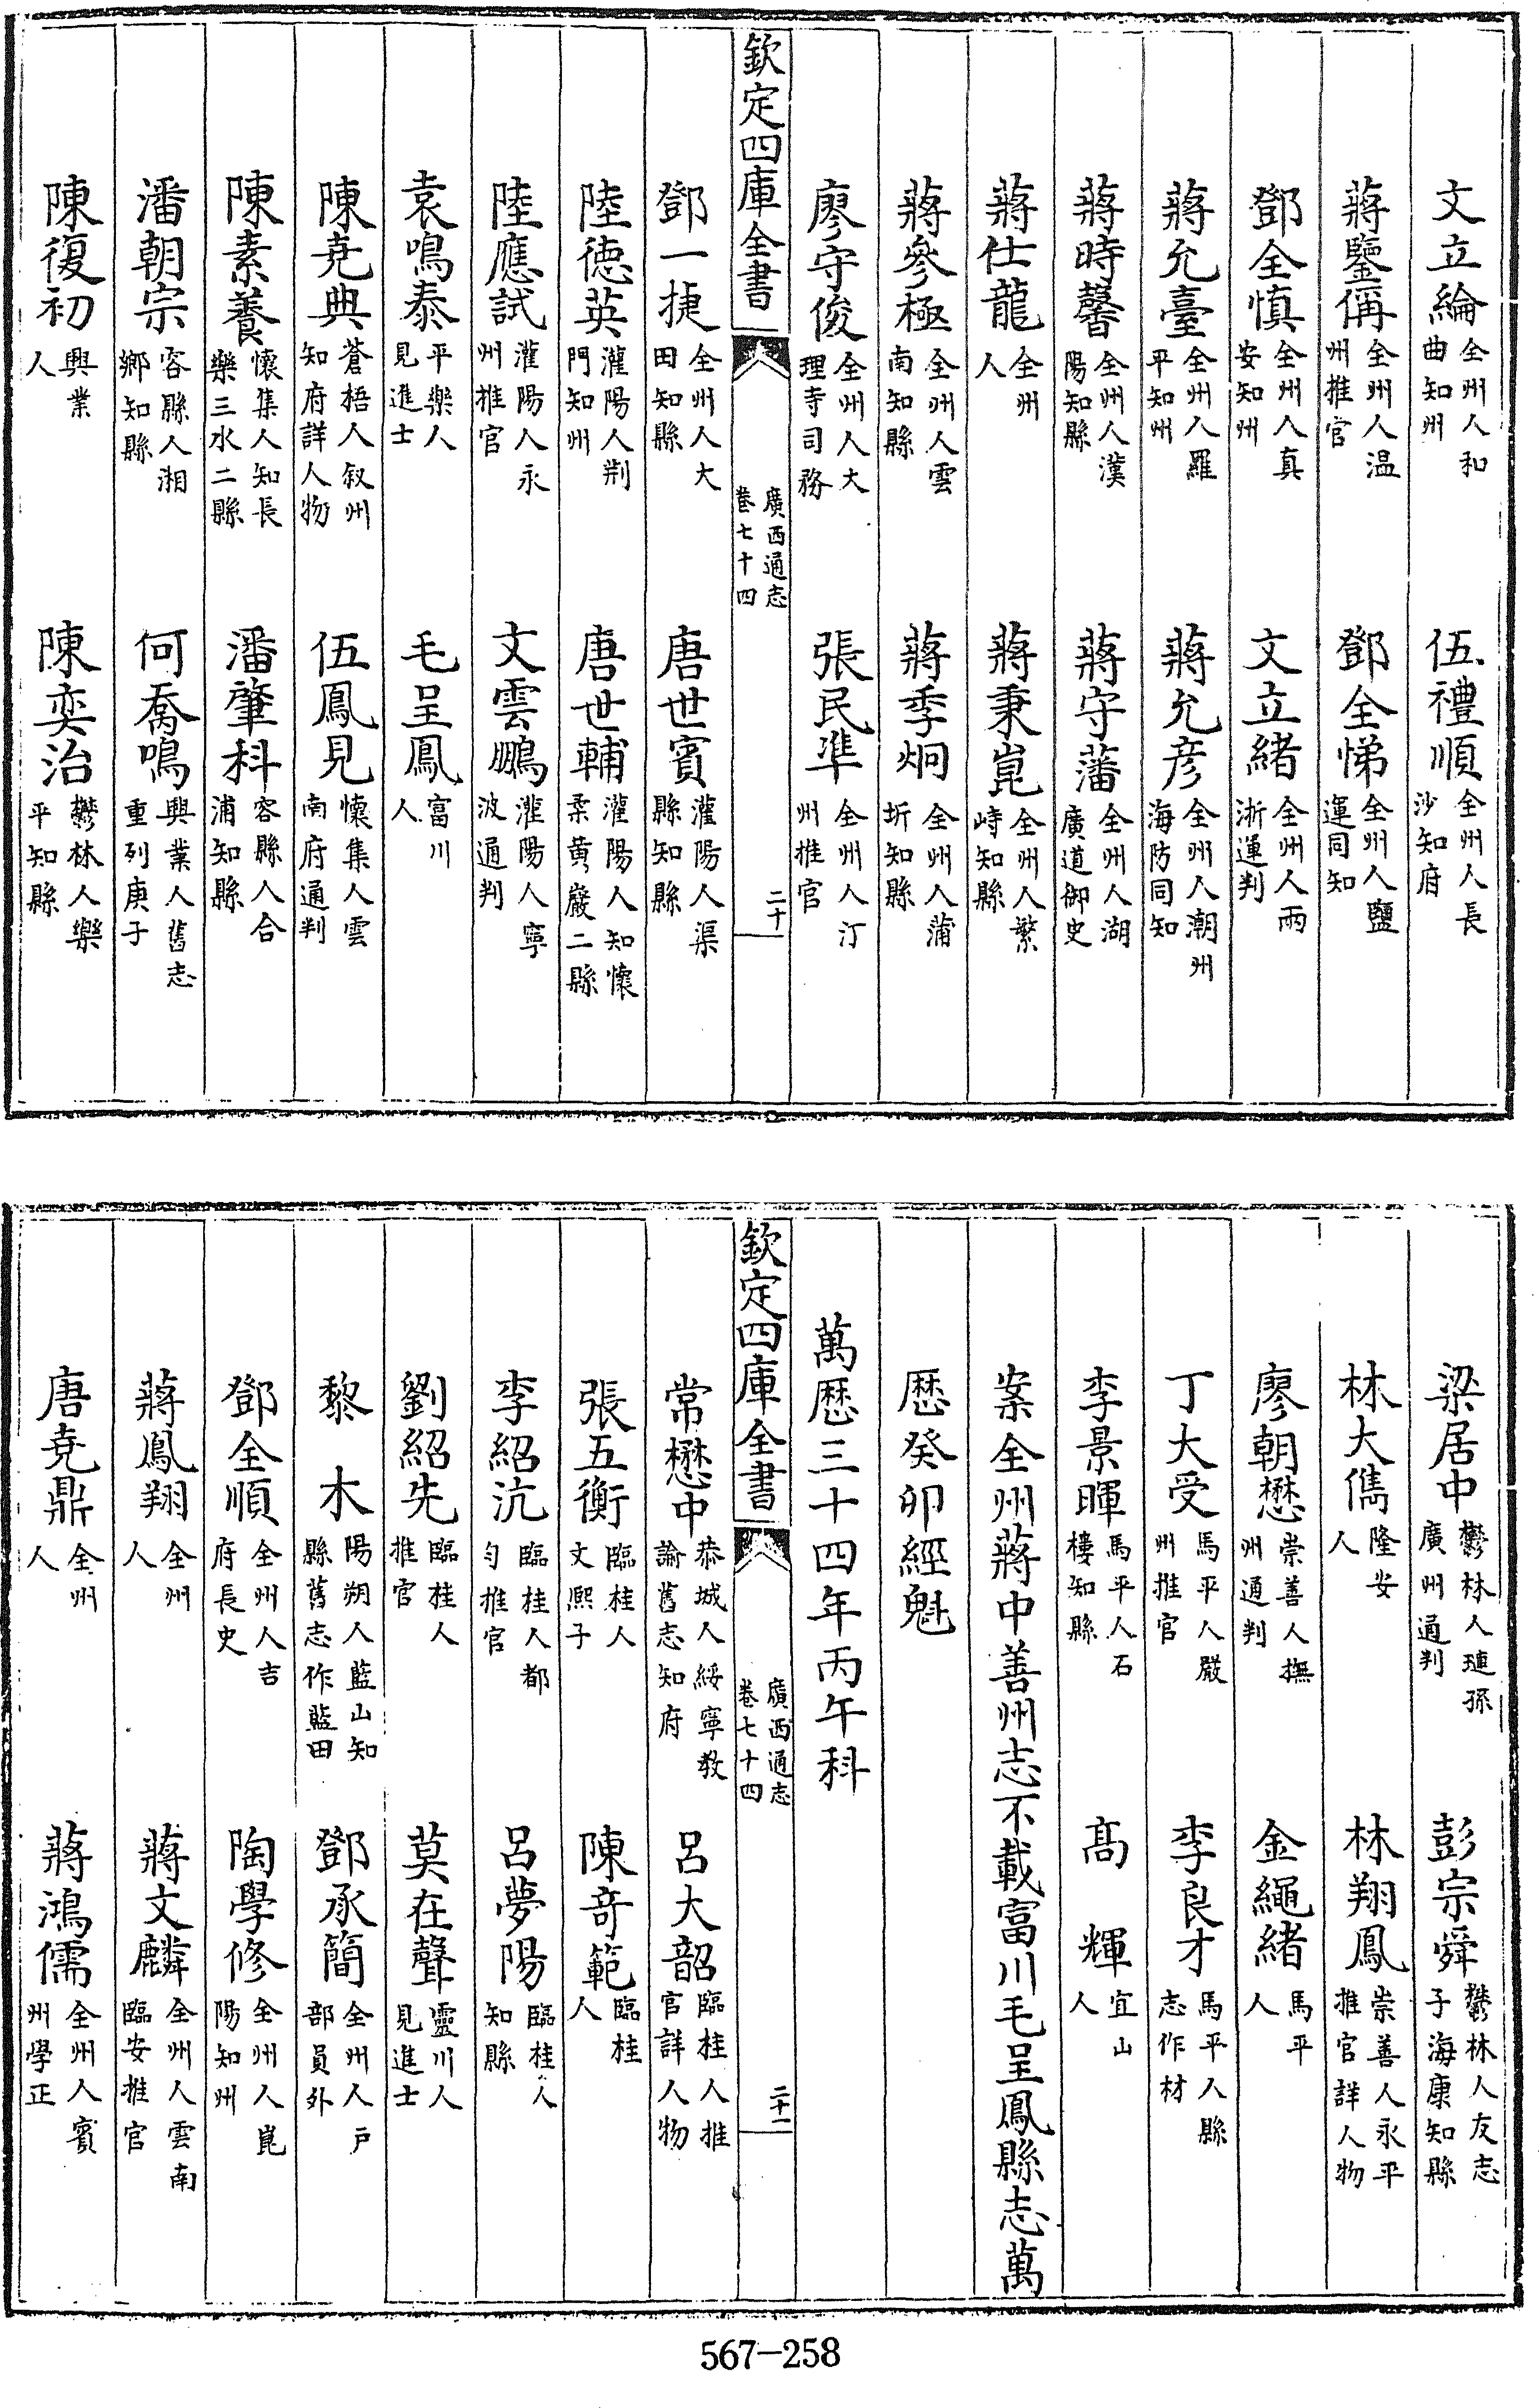 文立綸全州人和曲知州　伍禮順全州人長沙知府
蔣鑒偁全州人温州推官　鄧全悌全州人鹽運同知
鄧全慎全州人真安知州　文立緒全州人兩浙運判
蔣允臺全州人羅平知州　蔣允彦全州人潮州海防同知
蔣時馨全州人漢陽知縣　蔣守藩全州人湖廣道御史
蔣仕龍全州人　蔣秉崑全州人繁峙知縣
蔣參極全州人雲南知縣　蔣季炯全州人蒲圻知縣
廖守俊全州人大理寺司務　張民準全州人汀州推官
欽定四庫全書　廣西通志卷七十四　二十
鄧一捷全州人大田知縣　唐世賓灌陽人渠縣知縣
陸德英灌陽人荆門知州　唐世輔灌陽人知懷柔黄巖二縣
陸應試灌陽人永州推官　文雲鵬灌陽人寧波通判
袁鳴泰平樂人見進士　毛呈鳳富川人
陳堯典蒼梧人叙州知府詳人物　伍鳳見懷集人雲南府通判
陳素養懷集人知長樂三水二縣　潘肇科容縣人合浦知縣
潘朝宗容縣人湘鄉知縣　何喬鳴興業人舊志重列庚子
陳復初興業人　陳奕治鬱林人樂平知縣
梁居中鬱林人璉孫廣州通判　彭宗舜鬱林人友志子海康知縣
林大儁隆安人　林翔鳳崇善人永平推官詳人物
廖朝懋崇善人撫州通判　金繩緒馬平人
丁大受馬平人嚴州推官　李良才馬平人縣志作材
李景暉馬平人石樓知縣　髙輝宜山人
案全州蔣中善州志不載富川毛呈鳳縣志萬
歴癸卯經魁
萬歴三十四年丙午科
欽定四庫全書　廣西通志卷七十四　二十一
常懋中恭城人綏寧教諭舊志知府　呂大韶臨桂人推官詳人物
張五衡臨桂人文熙子　陳奇範臨桂人
李紹沆臨桂人都勻推官　呂夢陽臨桂人知縣
劉紹先臨桂人推官　莫在聲靈川人見進士
黎木陽朔人藍山知縣舊志作藍田　鄧承簡全州人户部員外
鄧全順全州人吉府長史　陶學修全州人崑陽知州
蔣鳳翔全州人　蔣文麟全州人雲南臨安推官
唐堯鼎全州人　蔣鴻儒全州人賓州學正
567—258